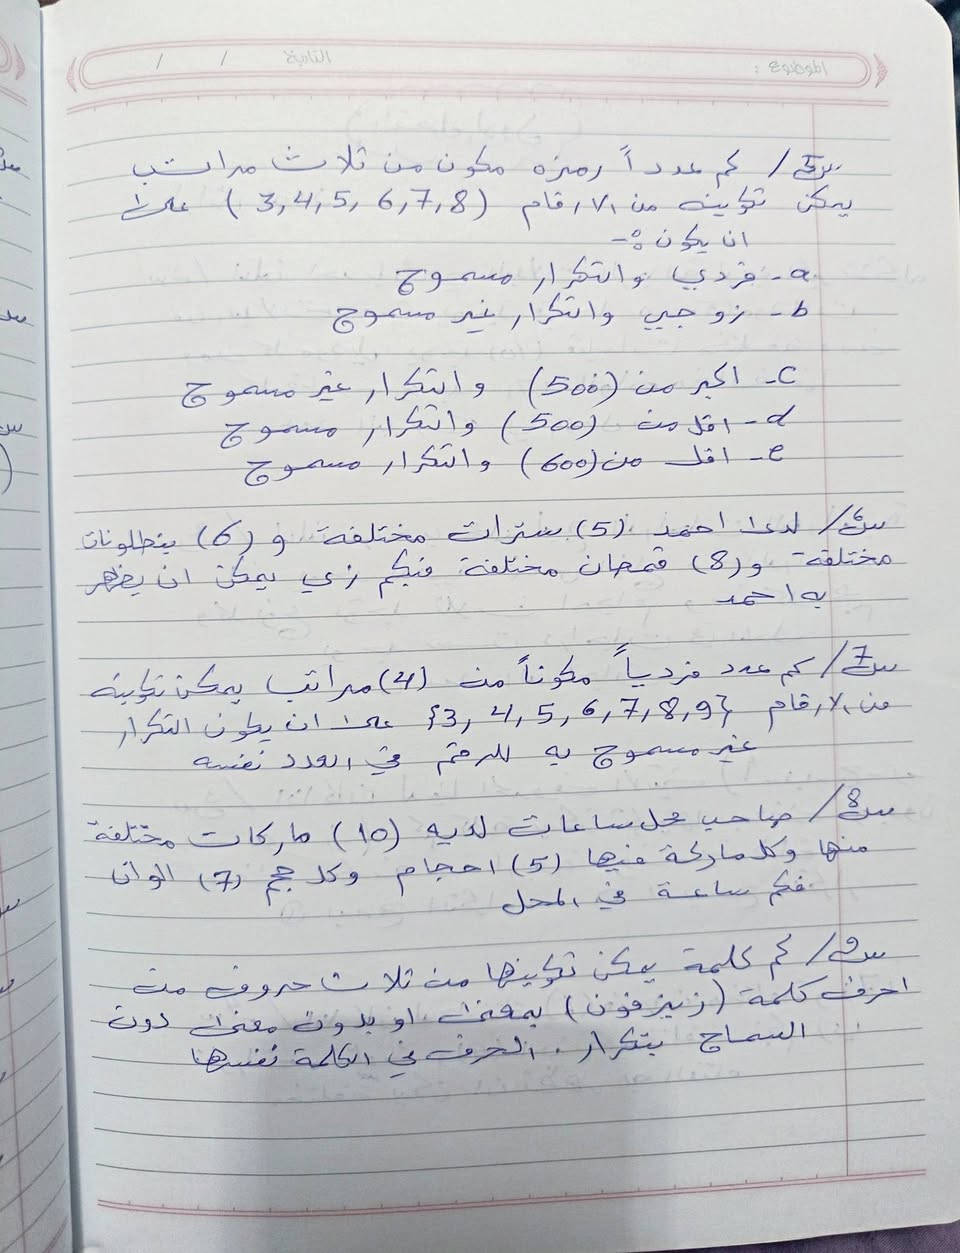 الموضوع :
التاريخ / /
س5/ كم عدداً رمزه مكون من ثلاث مراتب
يمكن تكوينه من الارقام (3,4,5,6,7,8) على
ان يكون :-
a- فردي والتكرار مسموح
b- زوجي والتكرار غير مسموح
c- اكبر من (500) والتكرار غير مسموح
d- اقل من (500) والتكرار مسموح
e- اقل من (600) والتكرار مسموح
س6/ لدى احمد (5) سترات مختلفة و (6) بنطلونات
مختلفة و(8) قمصان مختلفة فبكم زي يمكن ان يظهر
به احمد
س7/ كم عدد فردياً مكوناً من (4) مراتب يمكن تكوينه
من الارقام {3, 4, 5, 6, 7, 8, 9} على ان يكون التكرار
غير مسموح به للرقم في العدد نفسه
س8/ صاحب محل ساعات لديه (10) ماركات مختلفة
منها وكل ماركة فيها (5) احجام وكل حجم (7) الوان
فكم ساعة في المحل
س9/ كم كلمة يمكن تكوينها من ثلاث حروف من
احرف كلمة (زيزفون) بمعنى او بدون معنى دون
السماح بتكرار الحرف في الكلمة نفسها